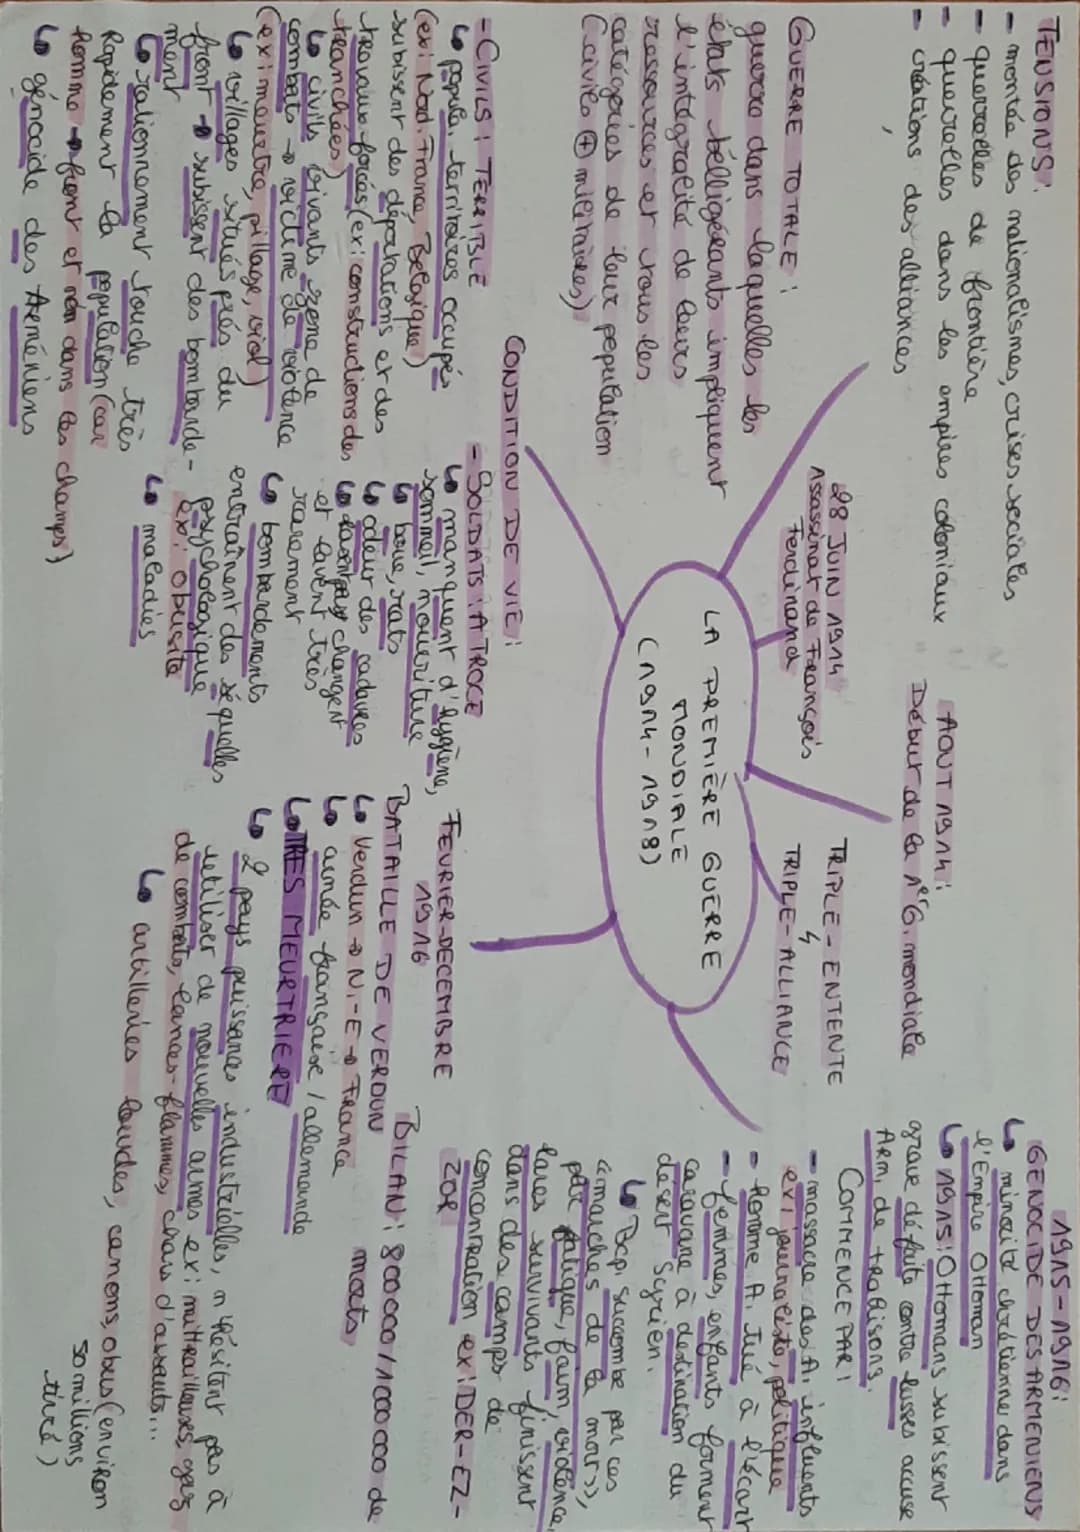 TENSIONS :
- montée des nationalismes, crises sociales
- querelles de frontière
- querelles dans les empires coloniaux
- créations des alliances
28 JUIN 1914
Assassinat de François
Ferdinand
AOUT 1914 :
Début de la 1ère G. mondiale
TRIPLE-ENTENTE
TRIPLE-ALLIANCE
1915-1916 :
GENOCIDE DES ARMENIENS
↳ minorité chrétienne dans
l'Empire Ottoman
↳ 1915 : Ottomans subissent
grave défaite contre russes accuse
Arm. de trahisons.
COMMENCE PAR :
- massacre des A. influents
ex : journaliste, politique
- homme A. tué à l'écart
- femmes, enfants forment
caravane à destination du
désert Syrien.
↳ Bcp. succombe par ces
« marches de la mort »,
par fatigue, faim, violence,
rares survivants finissent
dans des camps de
concentration ex : DER-EZ-
ZOR
GUERRE TOTALE :
guerre dans laquelles les
états belligérants impliquent
l'intégralité de leurs
ressources et tous les
catégories de leur population
(civiles + militaires)
LA PREMIÈRE GUERRE
MONDIALE
(1914-1918)
CONDITION DE VIE :
- CIVILS : TERRIBLE
↳ popula. territoires occupés
(ex : Nord. France, Belgique)
subissent des déportations et des
travaux forcés (ex : constructions des
tranchées)
↳ civils vivants zone de
combats → victime de violence
(ex : meurtre, pillage, viol)
↳ villages situés près du
front → subissent des bombarde-
ment
↳ rationnement touche très
Rapidement la population (car
Homme → front et non dans les champs)
↳ génocide des Arméniens
- SOLDATS : ATROCE
↳ manquent d'hygiène,
sommeil, nourriture
↳ boue, rats
↳ odeur des cadavres
↳ changent
et lavent très
rarement
↳ bombardements
entraînent des séquelles
psychologique
ex : obusite
↳ maladies
FEVRIER-DECEMBRE
1916
BATAILLE DE VERDUN
↳ Verdun → N.-E → France
↳ armée française / allemande
↳ TRES MEURTRIERE
BILAN : 800000/1000000 de
morts
↳ 2 pays puissances industrielles, n'hésitent pas à
utiliser de nouvelles armes ex : mitrailleuses, gaz
de combats, lances-flammes, chars d'assauts...
↳ artilleries lourdes, canons, obus (environ
50 millions
tiré)